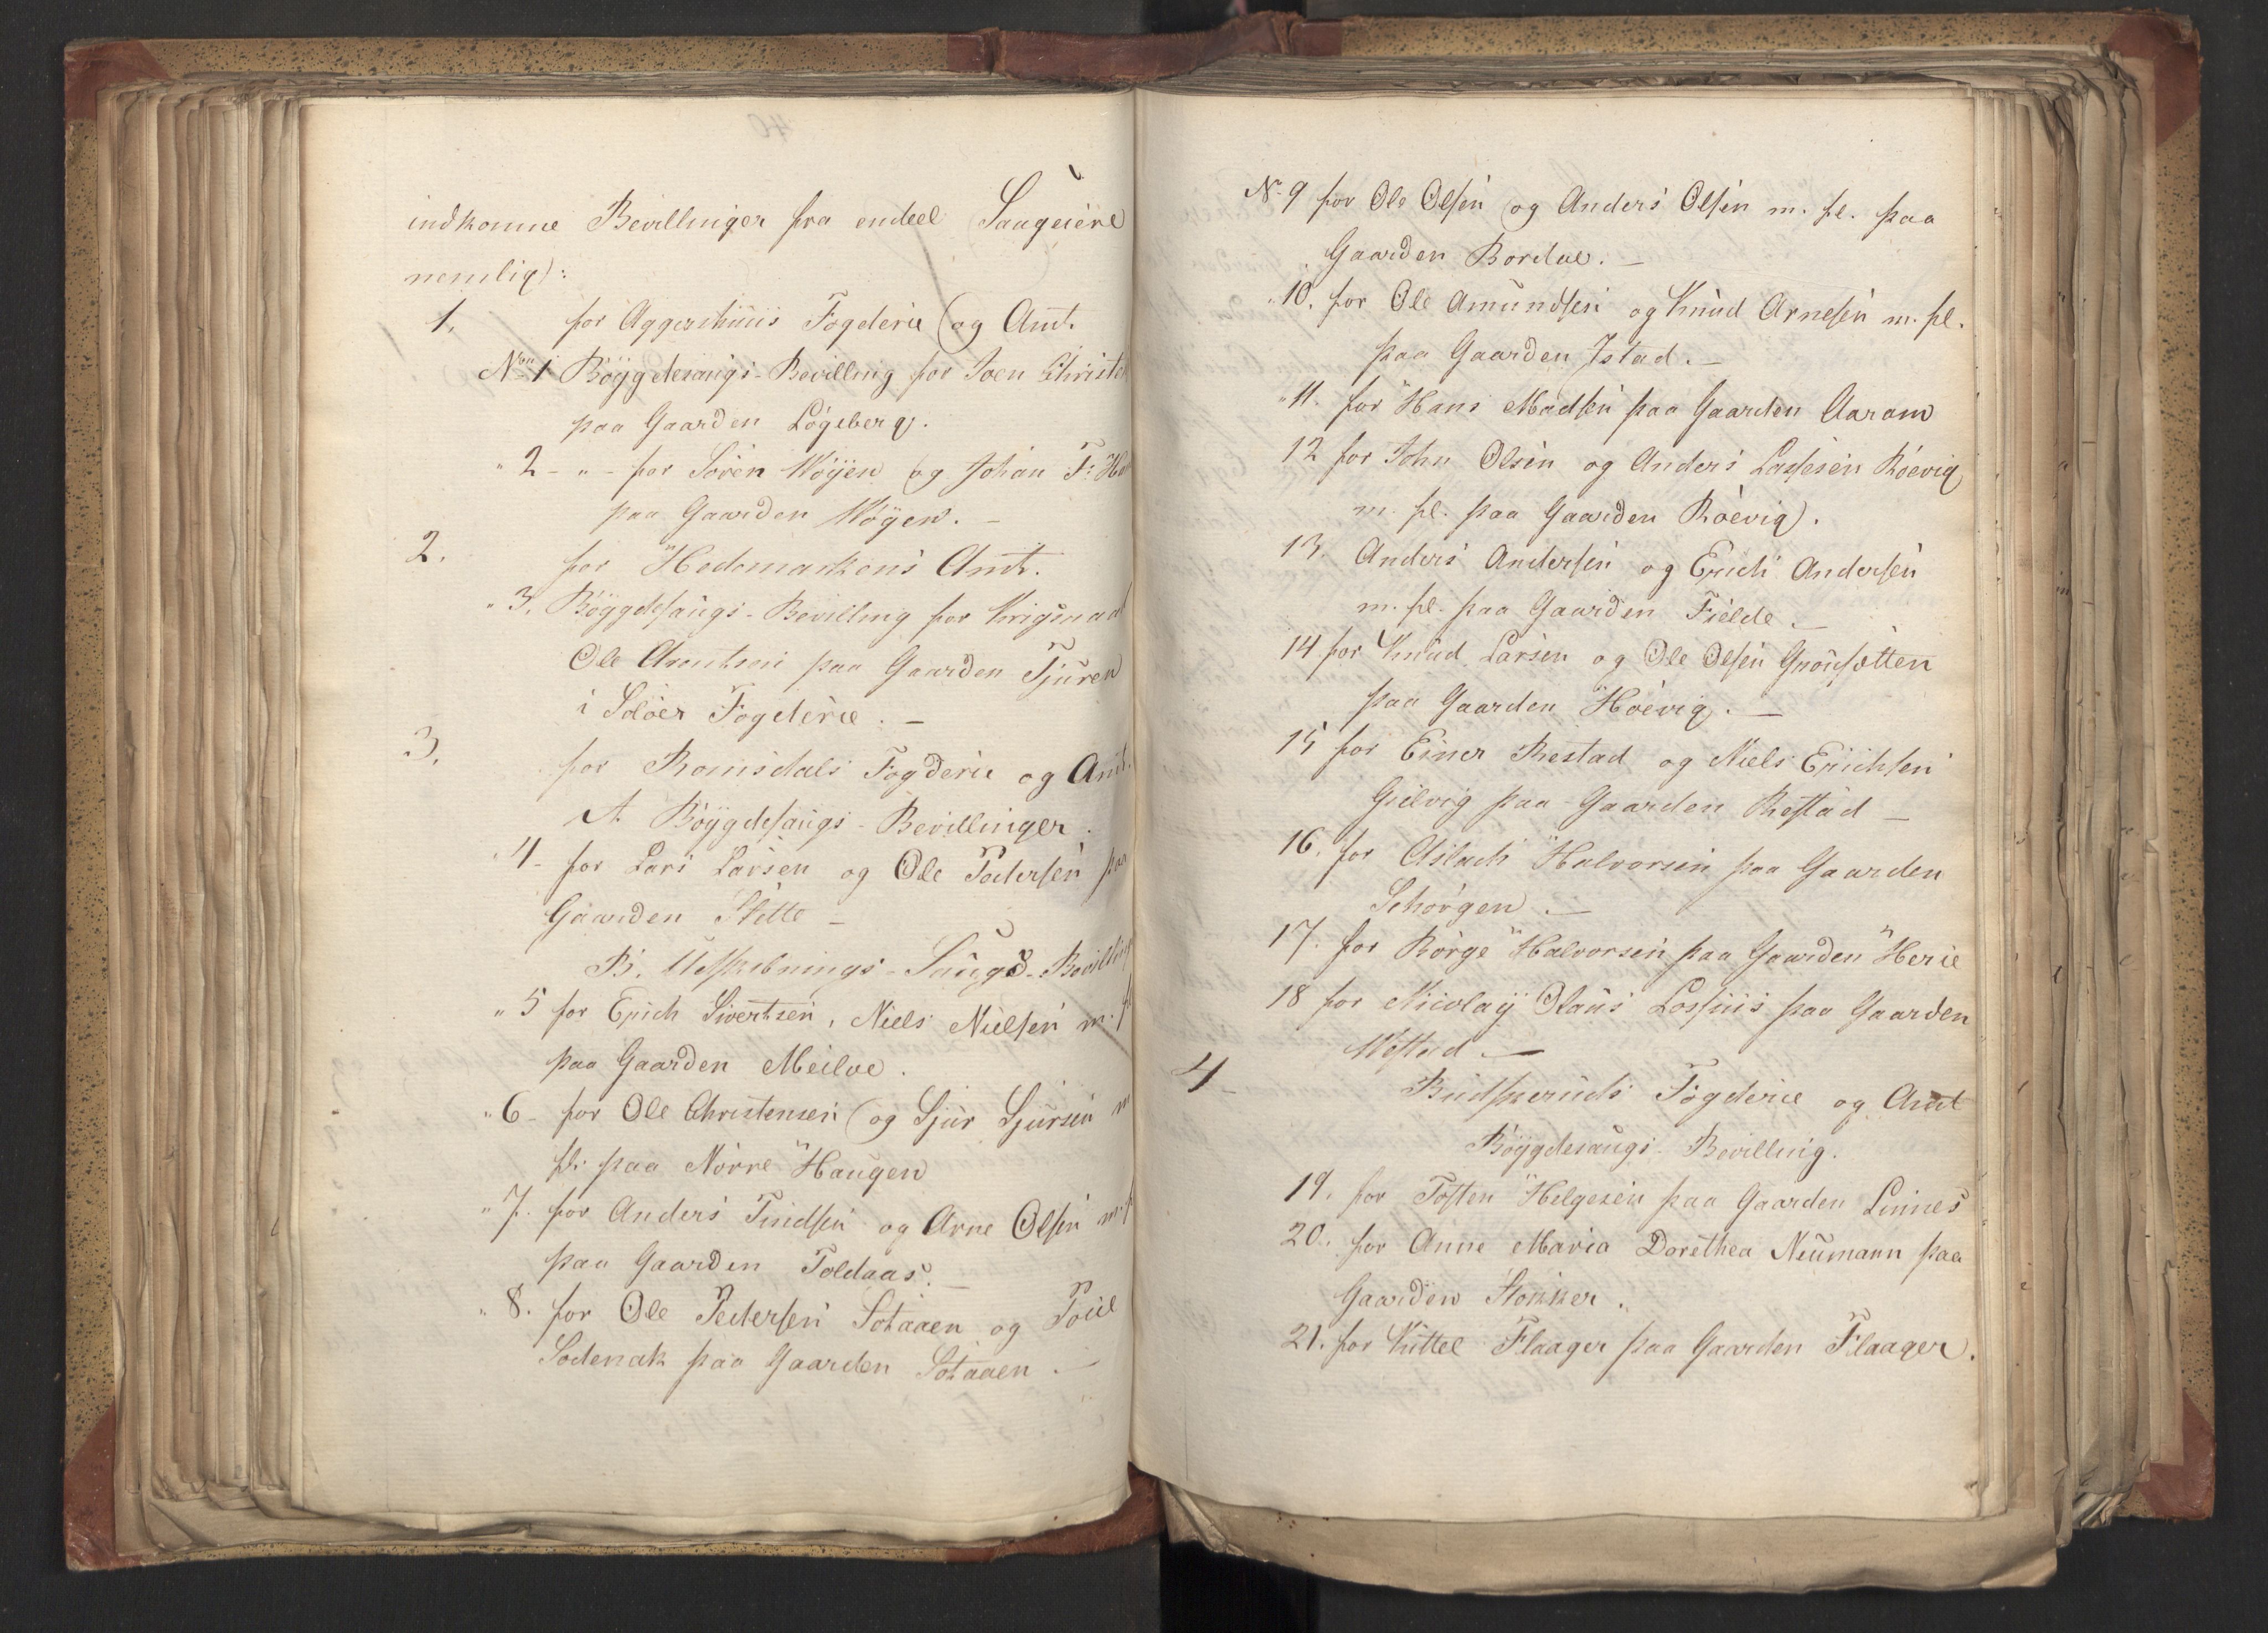 indkomne Bevillinger fra endeel Saugeiere
nemlig:
1. for Aggershuus Fogderie og Amt.
No 1 Böygdesaugs-Bevilling for Joen Christe
paa Gaarden Lögeberg.
" 2 - " - for Sören Wöyen og Johan F: Ho
paa Gaarden Wöyen. -
2. for Hedemarkens Amt.
" 3. Böygdesaugs-Bevilling for Krigsraad
Ole Arentsen paa Gaarden Tjuren
i Solöer Fogderie. -
3. for Romsdals Fogderie og Amt.
A. Böygdesaugs-Bevillinger.
" 4- for Lars Larsen og Ole Pedersen paa
Gaarden Stette -
B. Udskibnings-Saugs-Bevilling
" 5 for Erich Sivertsen, Niels Nielsen m. f
paa Gaarden Meilve.
" 6- for Ole Christensen og Sjur Sjursen m
fl. paa Nörre Haugen
" 7. for Anders Findsen og Arne Olsen m. f
paa Gaarden Toldaas. -
" 8. for Ole Pedersen Sotaaen og Poul
Sodenak paa Gaarden Sotaaen. -
No 9 for Ole Olsen og Anders Olsen m. fl. paa
Gaarden Bordve. -
" 10. for Ole Amundsen og Knud Arnesen m. fl.
paa Gaarden Istad. -
" 11. for Hans Madsen paa Gaarden Aaram
12 for John Olsen og Anders Lassesen Röevig
m. fl. paa Gaarden Röevig.
13. Anders Andersen og Erich Andersen
m. fl. paa Gaarden Fielde. -
14 for Knud Larsen og Ole Olsen
paa Gaarden Höevig. -
15 for Einer Restad og Niels Erichsen
Gielvig paa Gaarden Restad -
16. for Aslach Halvorsen paa Gaarden
Schorgen. -
17. for Börge Halvorsen paa Gaarden Herie
18 for Nicolay Olaus Lossius paa Gaarden
Westad -
4 - Budskeruds Fogderie og Amt
Böygdesaugs-Bevilling.
19. for Tosten Helgesen paa Gaarden Linnes
20. for Anne Maria Dorethea Neumann paa
Gaarden Stokker.
21. for Kittel Flaager paa Gaarden Flaager.